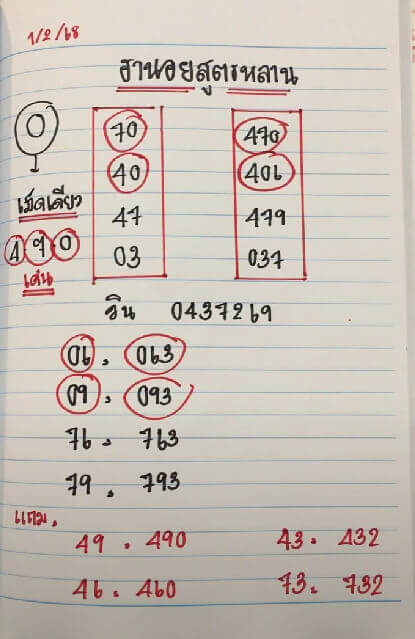 1/2/68
ฮานอยสูตรหลาน
0 70 470
40 406
เม็ดเดียว 47 479
4 7 0 03 037
เด่น
วิน 0437269
06 . 063
09 . 093
76 . 763
79 . 793
แถม.
49 . 490 43 . 432
46 . 460 73 . 732